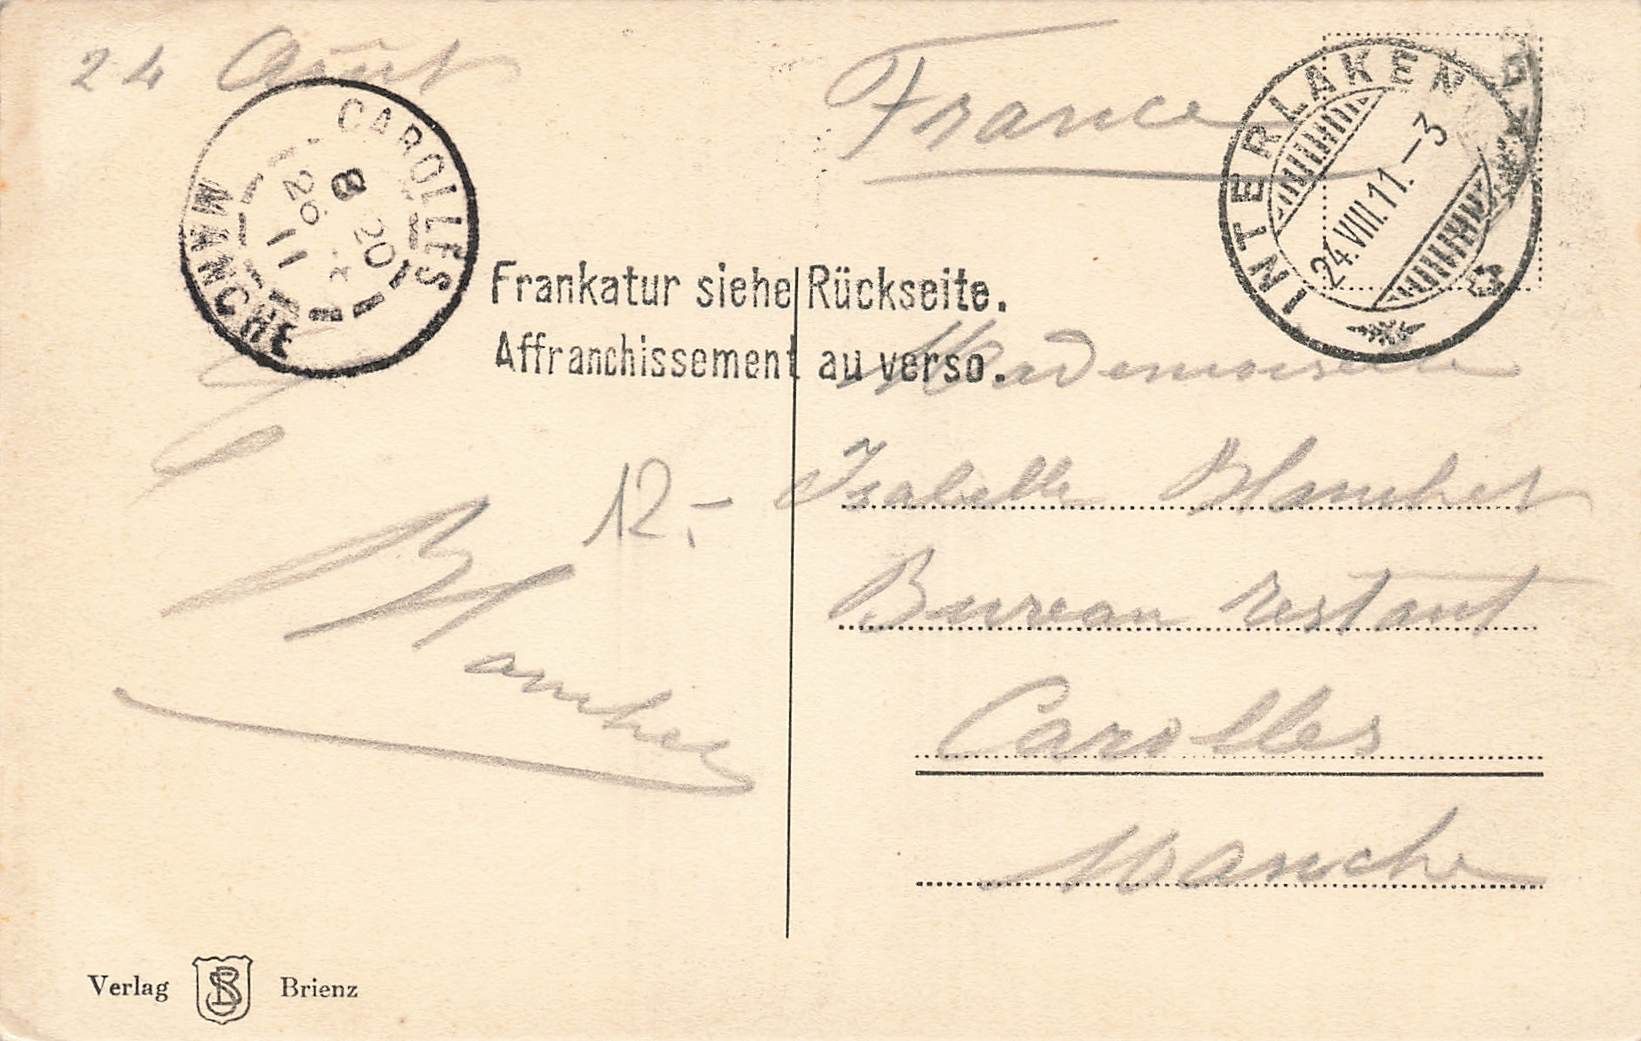 24 Août
France
CAROLLES
MANCHE
8 20
26
11
INTERLAKEN
24.VIII.11.-3
Frankatur siehe Rückseite.
Affranchissement au verso.
Mademoiselle
Isabelle Blanchet
Bureau restant
Carolles
Manche
12.-
Blanchet
Verlag SB Brienz